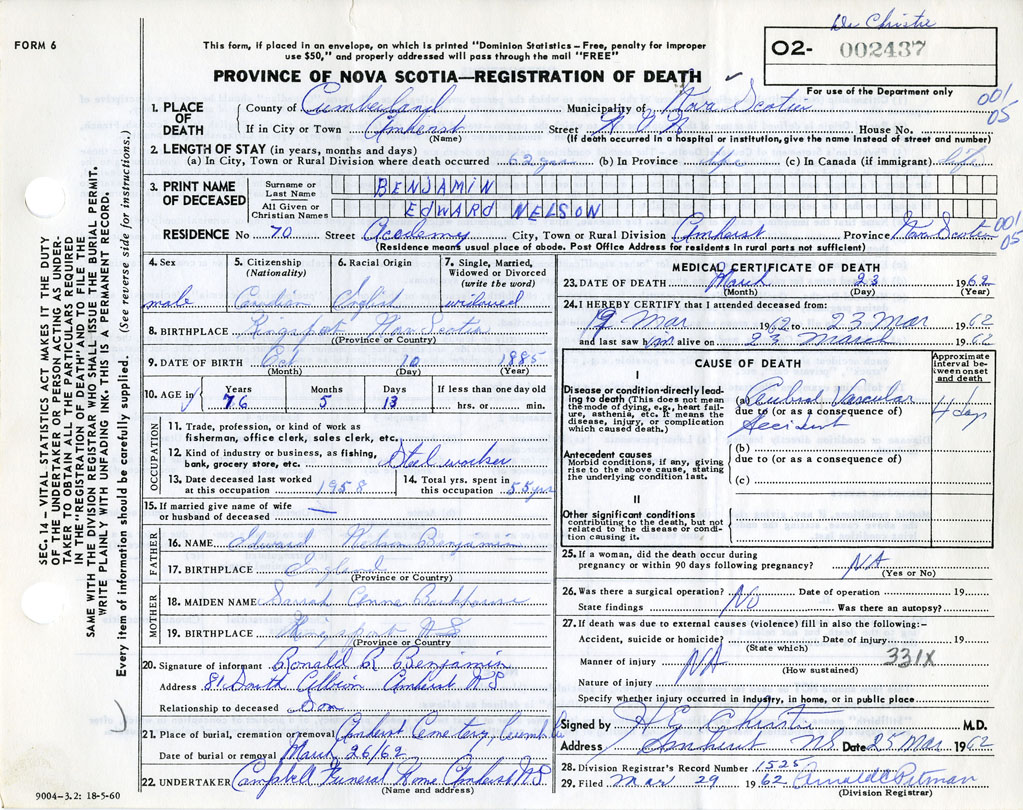 Dr Christie
FORM 6
This form, if placed in an envelope, on which is printed "Dominion Statistics – Free, penalty for improper
use $50," and properly addressed will pass through the mail "FREE"
O2- 002437
For use of the Department only
PROVINCE OF NOVA SCOTIA—REGISTRATION OF DEATH
001
05
1. PLACE OF DEATH County of Cumberland Municipality of Nova Scotia
If in City or Town Amherst Street House No.
(Name) (If death occurred in a hospital or institution, give the name instead of street and number)
2. LENGTH OF STAY (in years, months and days)
(a) In City, Town or Rural Division where death occurred 62 yrs (b) In Province life (c) In Canada (if immigrant) life
3. PRINT NAME OF DECEASED Surname or Last Name BENJAMIN
All Given or Christian Names EDWARD NELSON
RESIDENCE No 70 Street Academy City, Town or Rural Division Amherst Province Nova Scotia
001
05
(Residence means usual place of abode. Post Office Address for residents in rural parts not sufficient)
4. Sex 5. Citizenship (Nationality) 6. Racial Origin 7. Single, Married, Widowed or Divorced (write the word)
male Canadian English widowed
8. BIRTHPLACE Kingsport Nova Scotia
(Province or Country)
9. DATE OF BIRTH Oct 10 1885
(Month) (Day) (Year)
10. AGE in Years Months Days If less than one day old
76 5 13 hrs. or min.
OCCUPATION
11. Trade, profession, or kind of work as
fisherman, office clerk, sales clerk, etc.
12. Kind of industry or business, as fishing,
bank, grocery store, etc. Steel worker
13. Date deceased last worked at this occupation 1958 14. Total yrs. spent in this occupation 55 yrs
15. If married give name of wife
or husband of deceased —
FATHER
16. NAME Edward Nelson Benjamin
17. BIRTHPLACE England
(Province or Country)
MOTHER
18. MAIDEN NAME Sarah Anne
19. BIRTHPLACE Kingsport NS
(Province or Country)
20. Signature of informant Ronald R Benjamin
Address 81 South Albion Amherst NS
Relationship to deceased Son
21. Place of burial, cremation or removal Amherst Cemetery, Cumberland
Date of burial or removal March 26/62
22. UNDERTAKER Campbell Funeral Home Amherst NS
(Name and address)
9004-3.2: 18-5-60
MEDICAL CERTIFICATE OF DEATH
23. DATE OF DEATH March 23 1962
(Month) (Day) (Year)
24. I HEREBY CERTIFY that I attended deceased from:
19 Mar 1962 to 23 Mar 1962
and last saw him alive on 23 March 1962
CAUSE OF DEATH
Approximate interval between onset and death
I
Disease or condition directly leading to death (This does not mean the mode of dying, e.g., heart failure, asthenia, etc. It means the disease, injury, or complication which caused death.)
(a) Cerebral Vascular
due to (or as a consequence of)
Accident
4 days
Antecedent causes
Morbid conditions, if any, giving rise to the above cause, stating the underlying condition last.
(b)
due to (or as a consequence of)
(c)
II
Other significant conditions
contributing to the death, but not related to the disease or condition causing it.
25. If a woman, did the death occur during
pregnancy or within 90 days following pregnancy? NA
(Yes or No)
26. Was there a surgical operation? No Date of operation 19
State findings Was there an autopsy?
27. If death was due to external causes (violence) fill in also the following:-
Accident, suicide or homicide? Date of injury 19
(State which)
331X
Manner of injury NA
(How sustained)
Nature of injury
Specify whether injury occurred in industry, in home, or in public place
Signed by H G Christie M.D.
Address Amherst NS Date 25 Mar 1962
28. Division Registrar's Record Number 1525
29. Filed Mar 29 1962 Arnold C Pitman
(Division Registrar)
SEC. 14 – VITAL STATISTICS ACT MAKES IT THE DUTY
OF THE UNDERTAKER OR PERSON ACTING AS UNDER-
TAKER TO OBTAIN ALL THE PARTICULARS REQUIRED
IN THE "REGISTRATION OF DEATH" AND TO FILE THE
SAME WITH THE DIVISION REGISTRAR WHO SHALL ISSUE THE BURIAL PERMIT.
WRITE PLAINLY WITH UNFADING INK. THIS IS A PERMANENT RECORD.
Every item of information should be carefully supplied. (See reverse side for instructions.)